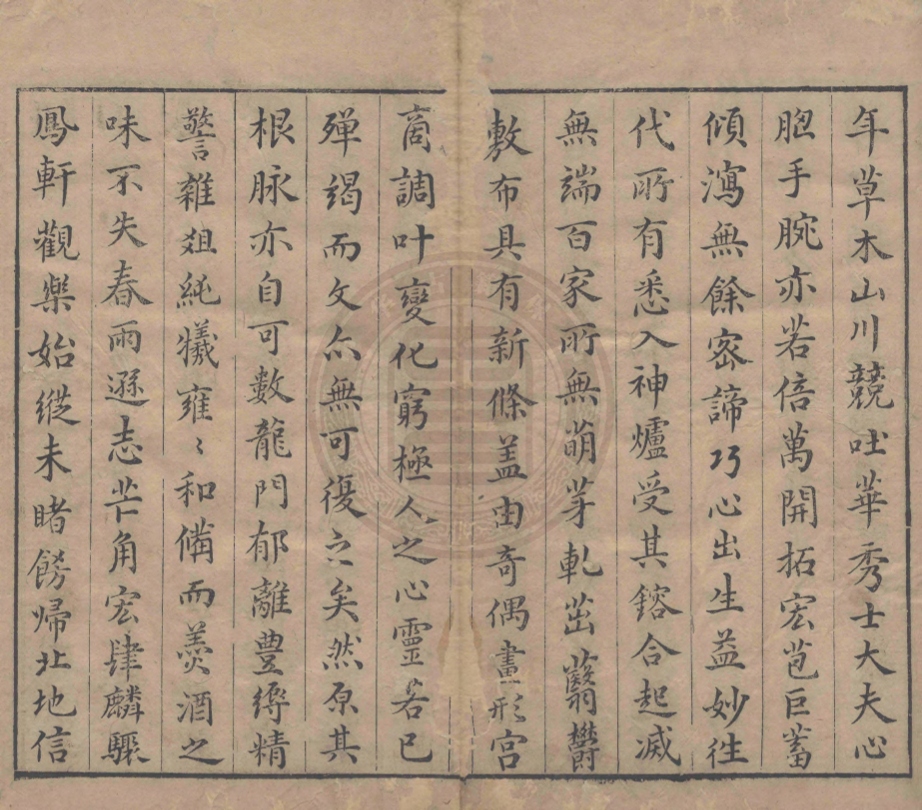 年草木山川競吐華秀士大夫心
胞手腕亦若倍萬開拓宏苞巨蓄
傾瀉無餘密諦巧心出生益妙徃
代所有悉入神爐受其鎔合起滅
無端百家所無萌芽軋茁蓊欝
敷布具有新條盖由奇偶畫形宮
商調叶變化窮極人之心靈若已
殫竭而文亦無可復之矣然原其
根脉亦自可數龍門郁離豊縟精
警雜爼純犧雍〻和僃而羮酒之
味不失春雨遜志芒角宏肆麟驟
鳳軒觀樂始縱未睹餝歸北地信